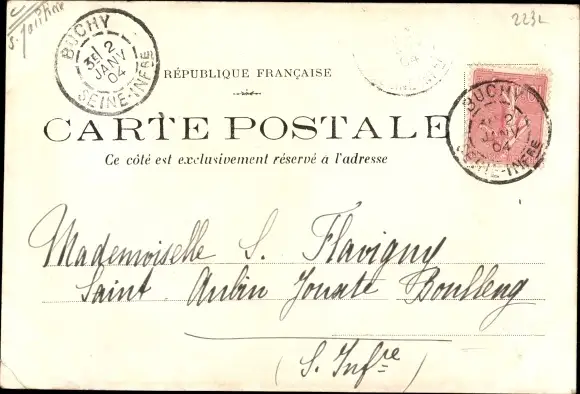 223L
BUCHY
3E 2
JANV
04
SEINE-INFRE
RÉPUBLIQUE FRANÇAISE
CARTE POSTALE
Ce côté est exclusivement réservé à l'adresse
BUCHY
2
JANV
04
SEINE-INFRE
04
Mademoiselle S. Flavigny
Saint Aubin Jouate Boulleng
(S. Infre)